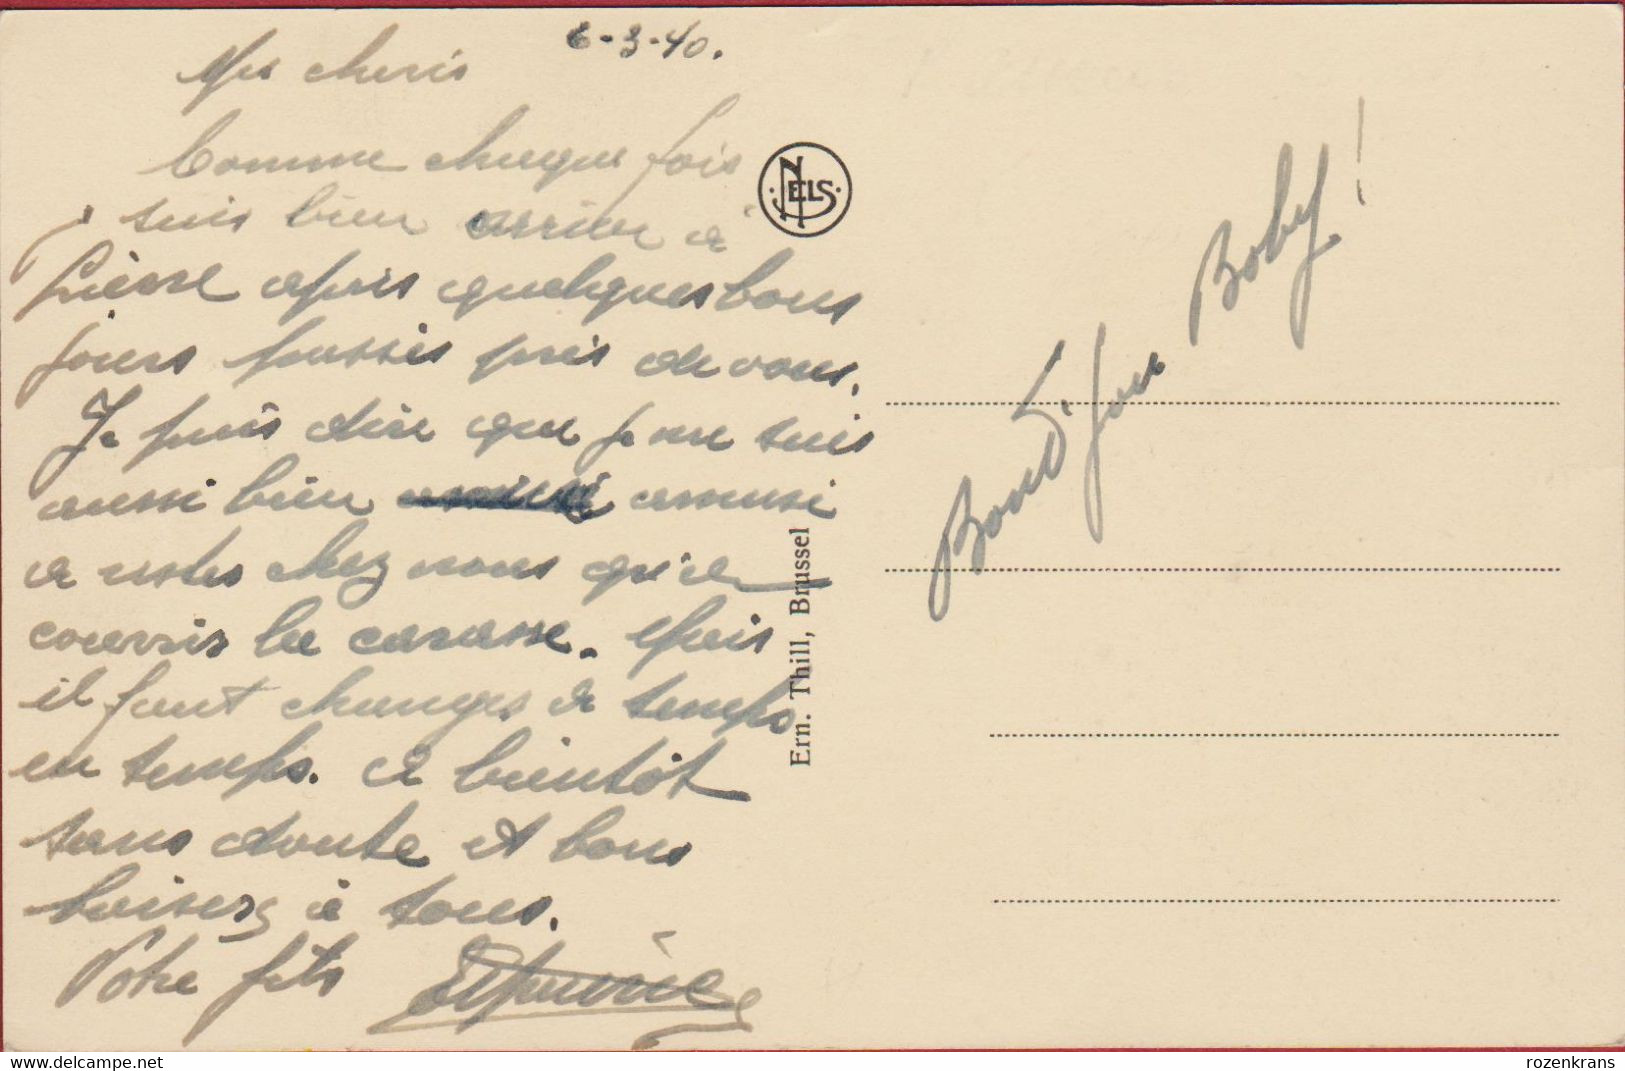 6-3-40.
Mes cheris
Comme chaque fois
suis bien arriver a
Lierre apris quelques bons
jours passés pris de vous.
Je puis dire que je me suis
aussi bien amusi
a restes chez nous qu'a
courris la carasse. Mais
il faut changes de temps
en temps. A bientôt
sans doute et bons
baisers à tous.
Votre fils
NELS
Ern. Thill, Brussel
Bons S. pour Boby!
rozenkrans